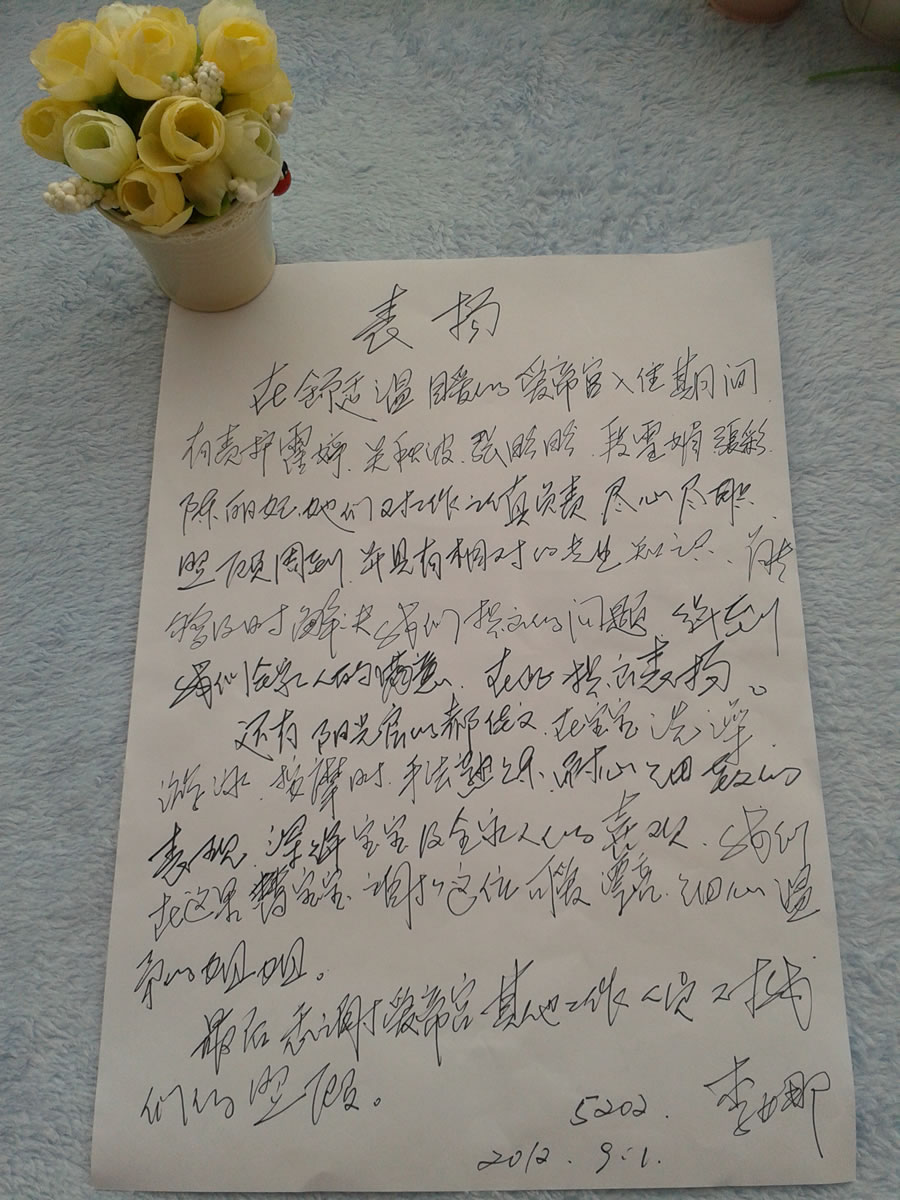 表扬
在舒适温暖的爱帝宫入住期间
有责护霍婷.关秋波.张盼盼.段雪娟.張彩.
陈丽妃.她们对工作认真负责 尽心尽职.
照顾周到.并具有相对的专业知识.
及时解决我们提交的问题
我们给家人的满意.在此提示表扬。
还有阳光房的都倩文.在宝宝洗澡.
游泳.按摩时.手法熟练.耐心细致的
表现.深得宝宝及全家人的喜欢.我们
在这里替宝宝谢谢这位可爱 漂亮.细心温
和的姐姐。
最后感谢爱帝宫其他工作人员对我
们的照顾。
5202. 李娜
2012.9.1.